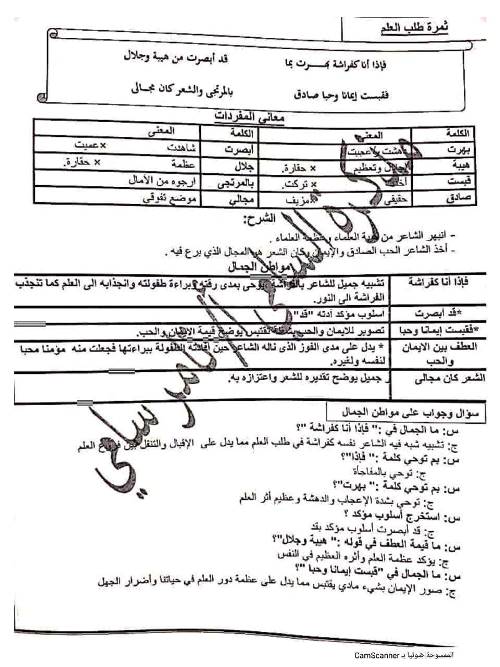 ثمرة طلب العلم
فإذا أنا كفراشة بهرت بما قد أبصرت من هيبة وجلال
فقبست إيمانا وحبا صادق بالمرتجى والشعر كان مجالى
معاني المفردات
الكلمة المعنى الكلمة المعنى
بهرت أبصرت شاهدت × عميت
هيبة وتعظيم × حقارة. جلال عظمة × حقارة.
قبست × تركت. بالمرتجى ارجوه من الأمال
صادق حقيقي مزيف مجالى موضع تفوقى
الشرح:
- انبهر الشاعر من هيبة العلماء وعظمة العلماء .
- أخذ الشاعر الحب الصادق والإيمان وكان الشعر هو المجال الذي برع فيه .
مواطن الجمال
فإذا أنا كفراشة تشبيه جميل للشاعر بالفراشة يوحى بمدى رقته وبراءة طفولته وانجذابه الى العلم كما تنجذب
الفراشة الى النور.
*قد ابصرت اسلوب مؤكد أدته "قد"
*فقبست إيمانا وحبا تصوير للايمان والحب يقتبس يوضح قيمة الايمان والحب.
العطف بين الايمان والحب * يدل على مدى الفوز الذى ناله الشاعر حين الطفولة ببراءتها فجعلت منه مؤمنا محبا
لنفسه ولغيره.
الشعر كان مجالى جميل يوضح تقديره للشعر واعتزازه به.
سؤال وجواب على مواطن الجمال
س: ما الجمال في :" فإذا أنا كفراشة "؟
ج: تشبيه شبه فيه الشاعر نفسه كفراشة في طلب العلم مما يدل على الإقبال والتنقل بين العلم
س: بم توحي كلمة :" فإذا"؟
ج: توحي بالمفاجأة
س: بم توحي كلمة :" بهرت"؟
ج: توحي بشدة الإعجاب والدهشة وعظيم أثر العلم
س: استخرج أسلوب مؤكد ؟
ج: قد أبصرت أسلوب مؤكد بقد
س: ما قيمة العطف في قوله :" هيبة وجلال"؟
ج: يؤكد عظمة العلم وأثره العظيم في النفس
س: ما الجمال في "قبست إيمانا وحبا "؟
ج: صور الإيمان بشيء مادي يقتبس مما يدل على عظمة دور العلم في حياتنا وأضرار الجهل
الممسوحة ضوئيا بـ CamScanner